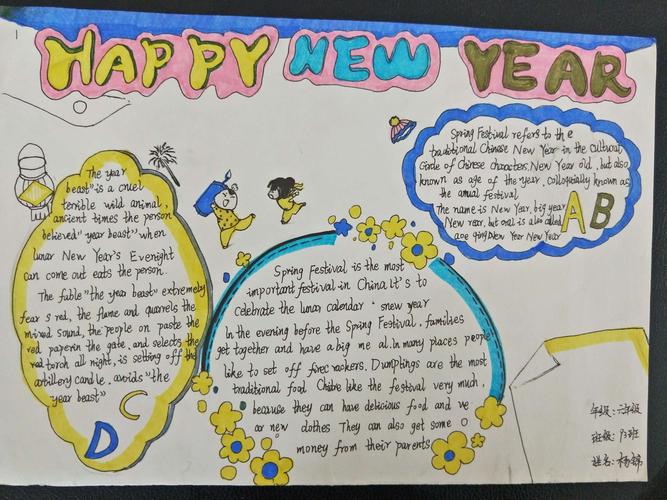 HAPPY NEW YEAR
The year
beast" is a cruel
terrible wild animal,
ancient times the person
believed "year beast" when
lunar New Year's Evenight
can come out eats the person.
The fable "the year beast" extremely
fear s red, the flame and quarrels the
mixed sound, the people on paste the
red paperin the gate, and selects the
red torch all night, is setting off the
artillery candle, avoids "the
year beast"
C
D
Spring Festival is the most
important festival in China.It's to
Celebrate the lunar calendar ' snew year
In the evening before the Spring Festival, families
get together and have a big me al.in many places people
like to set off firec rackers. Dumplings are the most
traditional food like the festival very much,
because they can have delicious food and we
ar new clothes They can also get some
money from their parents
Spring Festival refers to the
traditional Chinese New Year in the cultural
Circle of Chinese characters.New Year old, but also
known as age of the year, colloquially known as
the annual festival
The name is New Year, big year
New rear, but oral is also called
New Year New Year
A B
年级:六年级
班级:93班
姓名:杨锦